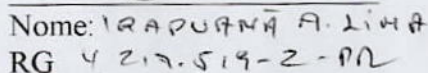 Nome: IRAPUANÃ A. LIMA
RG 4 217.519-2-PR